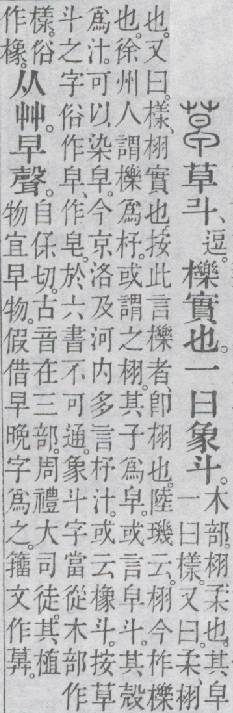 草斗、逗。櫟實也。一曰象斗。
木部。栩、柔也。其皁
一曰樣。又曰。柔、栩
也。又曰。樣、栩實也。按此言櫟者、卽栩也。陸璣云。栩今柞櫟
也。徐州人謂櫟爲杼。或謂之栩。其子爲皁。或言皁斗。其殼
爲汁。可以染皁。今京洛及河内多言杼汁。或云橡斗。按草
斗之字俗作皁、作皂。於六書不可通。象斗字當從木部作
樣。俗
作橡。
从艸。早聲。
自保切。古音在三部。周禮大司徒。其植
物宜早物。假借早晚字爲之。籒文作